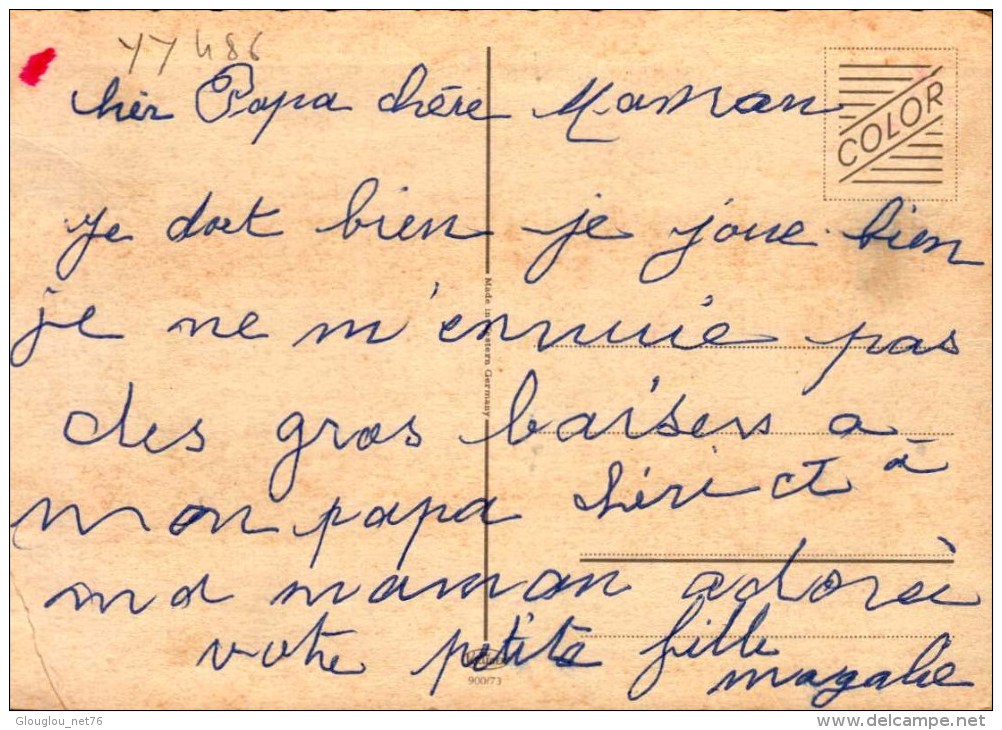 YY 486
chèr Papa chérie Maman
COLOR
je dort bien je joue bien
je ne m'ennuie pas
des gros baisers a
mon papa chéri et à
ma maman adorée
votre petite fille
magalie
Made in Western Germany
900/73
Glouglou_net76
delcampe.net